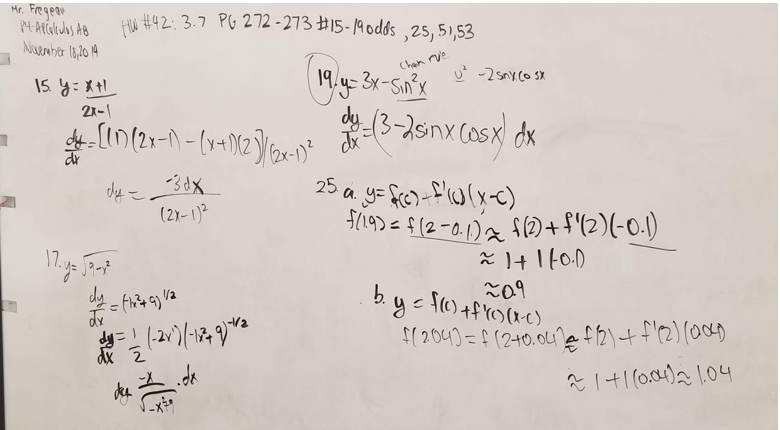 Mr. Fregeau
P4-APCalculus AB
November 18, 2019
HW #42: 3.7 PG 272-273 #15-19 odds, 25, 51, 53
15. y = x+1
2x-1
dy/dx = [(1)(2x-1) - (x+1)(2)]/(2x-1)²
dy = -3dx
(2x-1)²
17. y = √9-x²
dy/dx = (-1x²+9)^1/2
dy/dx = 1/2 (-2x¹)(-1x²+9)^-1/2
dy -x/√-x²+9 · dx
chain rule
19. y = 3x - sin²x u² -2sinxcosx
dy/dx = (3-2sinxcosx) dx
25. a. y = f(c) + f'(c)(x-c)
f(1.9) = f(2-0.1) ≈ f(2) + f'(2)(-0.1)
≈ 1 + 1(-0.1)
≈ 0.9
b. y = f(c) + f'(c)(x-c)
f(2.04) = f(2+0.04) ≈ f(2) + f'(2)(0.04)
≈ 1 + 1(0.04) ≈ 1.04